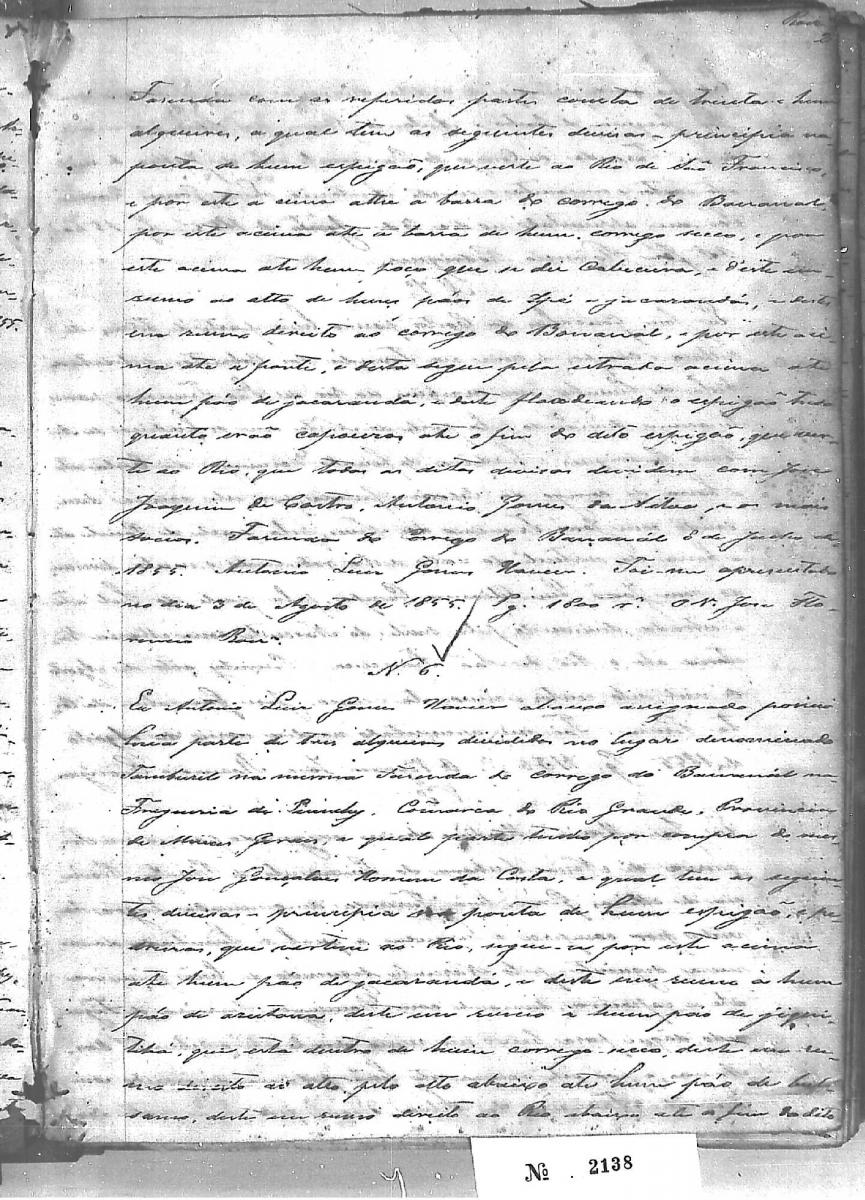 Fazenda com as referidas partes consta de trinta e hum
alqueires, a qual tem as seguintes divisas – principia na
ponta de hum espigão, que verte ao Rio de São Francisco,
e por este a cima athe a barra do corrego do Bananal
por este acima até a barra de hum corrego secco, e por
este acima ate hum poço que se diz Cabeceira, e d'este em
rumo ao alto de huns páos de Ipé e jacarandá, e deste
em rumo direito ao corrego do Bananál, e por este aci-
ma ate a ponte, e desta segue pela estrada acima até
hum páo de jacarandá, e deste o espigão tudo
quanto erão capoeiras até o fim do dito espigão, que ver-
te ao Rio, que todas as ditas divisas dividem com José
Joaquim de Castro, Antonio Gomes da Silva, e os mais
socios. Fazenda do Corrego do Bananál 8 de de
1855. Antonio Luis Xavier. Foi-me apresentado
no dia 3 de Agosto de 1855. Pg. 1800 rs. O V. Jose Flo-
rencio
N. 6.
Eu Antonio Luis Xavier abaixo assignado possuo
huma parte de tres alqueires divididos no lugar denominado
na mesma Fazenda do corrego do Bananál na
Freguesia de Piumhy, Comarca do Rio Grande, Provincia
de Minas Geraes, a qual parte tudo por compra do mes-
mo José Gonçalves da Costa, a qual tem as seguin-
tes divisas – principia na ponta de hum espigão, e pe-
dreiras, que vertem ao Rio, segue-se por este acima
ate hum páo de jacarandá, e deste em rumo á hum
páo de azeitona, deste em rumo á hum páo de gequi-
tibá, que está dentro de hum corrego secco, deste em ru-
mo direito ao alto, pelo alto abaixo ate hum páo de bal-
samo, deste em rumo direito ao Rio, abaixo até o fim do dito
Nº 2138